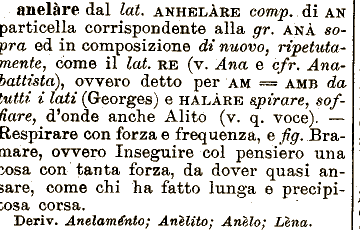 anelàre dal lat. ANHELÀRE comp. di AN
particella corrispondente alla gr. ANÀ so-
pra ed in composizione di nuovo, ripetuta-
mente, come il lat. RE (v. Ana e cfr. Ana-
battista), ovvero detto per AM = AMB da
tutti i lati (Georges) e HALÀRE spirare, sof-
fiare, d'onde anche Alito (v. q. voce). —
Respirare con forza e frequenza, e fig. Bra-
mare, ovvero Inseguire col pensiero una
cosa con tanta forza, da dover quasi an-
sare, come chi ha fatto lunga e precipi-
tosa corsa.
Deriv. Anelaménto; Anèlito; Anèlo; Lèna.